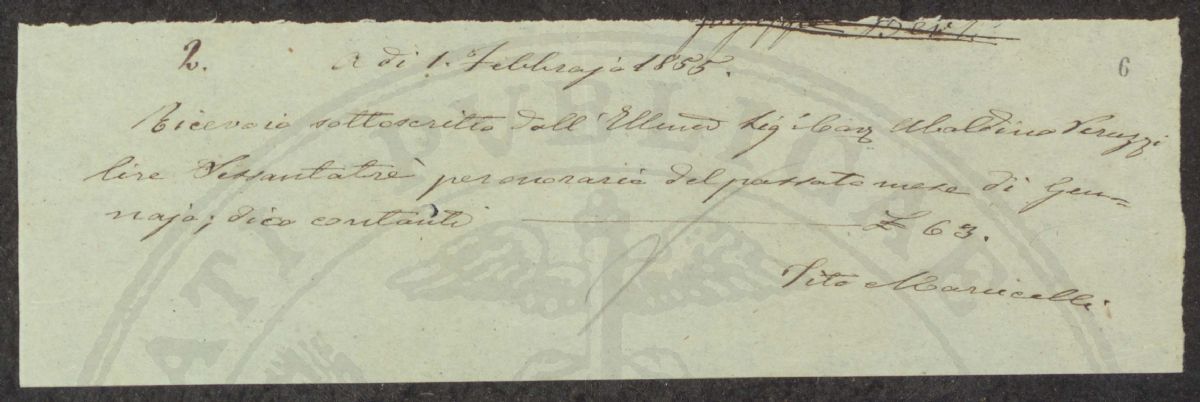 2. A dì 1. Febbrajo 1855. 6
Ricevo io sottoscritto dall' Sig: Cav Ubaldino Peruzzi
lire Sessantatrè per onorario del passato mese di Gen=
najo; dico contanti £ 63.
Tito
PUBLICAE